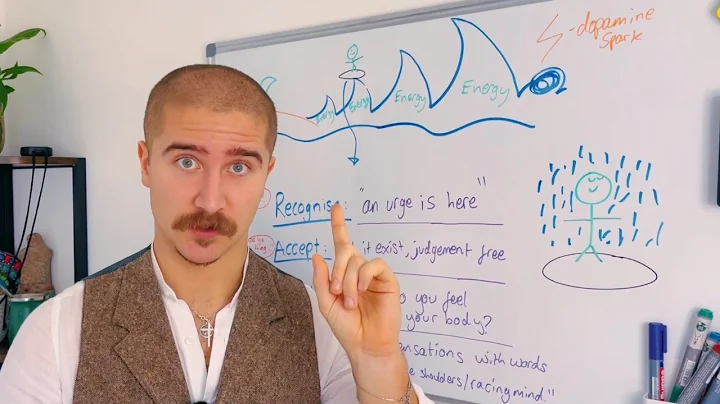 - dopamine
spark
Energy
Energy
Energy
Energy
Recognise: "an urge is here"
Accept: it exist, judgement free
you feel
your body?
sensations with words
shoulders/racing mind."